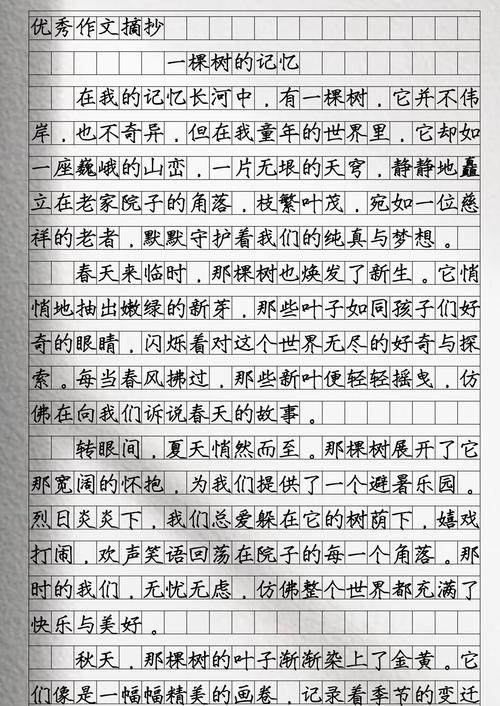 优秀作文摘抄
一棵树的记忆
在我的记忆长河中，有一棵树，它并不伟
岸，也不奇异，但在我童年的世界里，它却如
一座巍峨的山峦，一片无垠的天穹，静静地矗
立在老家院子的角落，枝繁叶茂，宛如一位慈
祥的老者，默默守护着我们的纯真与梦想。
春天来临时，那棵树也焕发了新生。它悄
悄地抽出嫩绿的新芽，那些叶子如同孩子们好
奇的眼睛，闪烁着对这个世界无尽的好奇与探
索。每当春风拂过，那些新叶便轻轻摇曳，仿
佛在向我们诉说春天的故事。
转眼间，夏天悄然而至。那棵树展开了它
那宽阔的怀抱，为我们提供了一个避暑乐园。
烈日炎炎下，我们总爱躲在它的树荫下，嬉戏
打闹，欢声笑语回荡在院子的每一个角落。那
时的我们，无忧无虑，仿佛整个世界都充满了
快乐与美好。
秋天，那棵树的叶子渐渐染上了金黄。它
们像是一幅幅精美的画卷，记录着季节的变迁